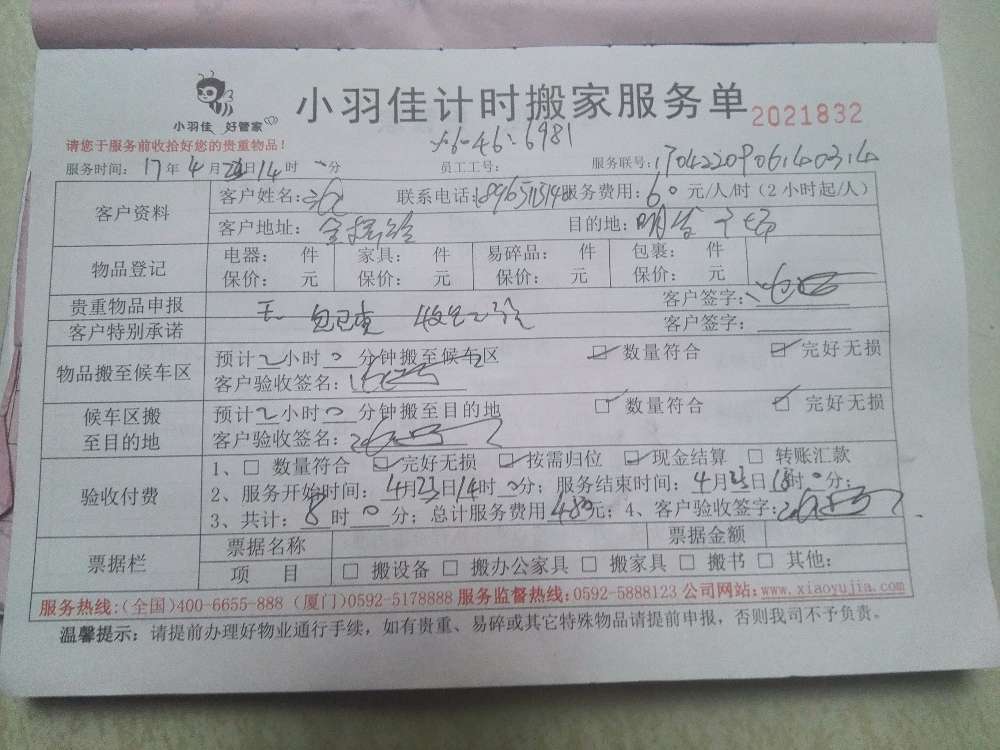 小羽佳 好管家
小羽佳计时搬家服务单 2021832
请您于服务前收拾好您的贵重物品！
服务时间：17年4月23日14时 分 员工工号： 6981 服务联号：
客户资料
客户姓名： 联系电话： 服务费用：60元/人/时（2小时起/人）
客户地址： 目的地：
物品登记
电器： 件 家具： 件 易碎品： 件 包裹： 件
保价： 元 保价： 元 保价： 元 保价： 元
贵重物品申报 无 客户签字：
客户特别承诺 客户签字：
物品搬至候车区
预计 2 小时 0 分钟搬至候车区 ☑ 数量符合 ☑ 完好无损
客户验收签名：
候车区搬至目的地
预计 2 小时 0 分钟搬至目的地 ☑ 数量符合 ☑ 完好无损
客户验收签名：
验收付费
1、☐ 数量符合 ☑ 完好无损 ☑ 按需归位 ☑ 现金结算 ☐ 转账汇款
2、服务开始时间：4月23日14时 0分；服务结束时间：4月23日18时 0分；
3、共计：8 时 0 分；总计服务费用 480元；4、客户验收签字：
票据栏
票据名称 票据金额
项 目 ☐ 搬设备 ☐ 搬办公家具 ☐ 搬家具 ☐ 搬书 ☐ 其他：
服务热线：（全国）400-6655-888（厦门）0592-5178888 服务监督热线：0592-5888123 公司网站：www.xiaoyujia.com
温馨提示：请提前办理好物业通行手续，如有贵重、易碎或其它特殊物品请提前申报，否则我司不予负责。